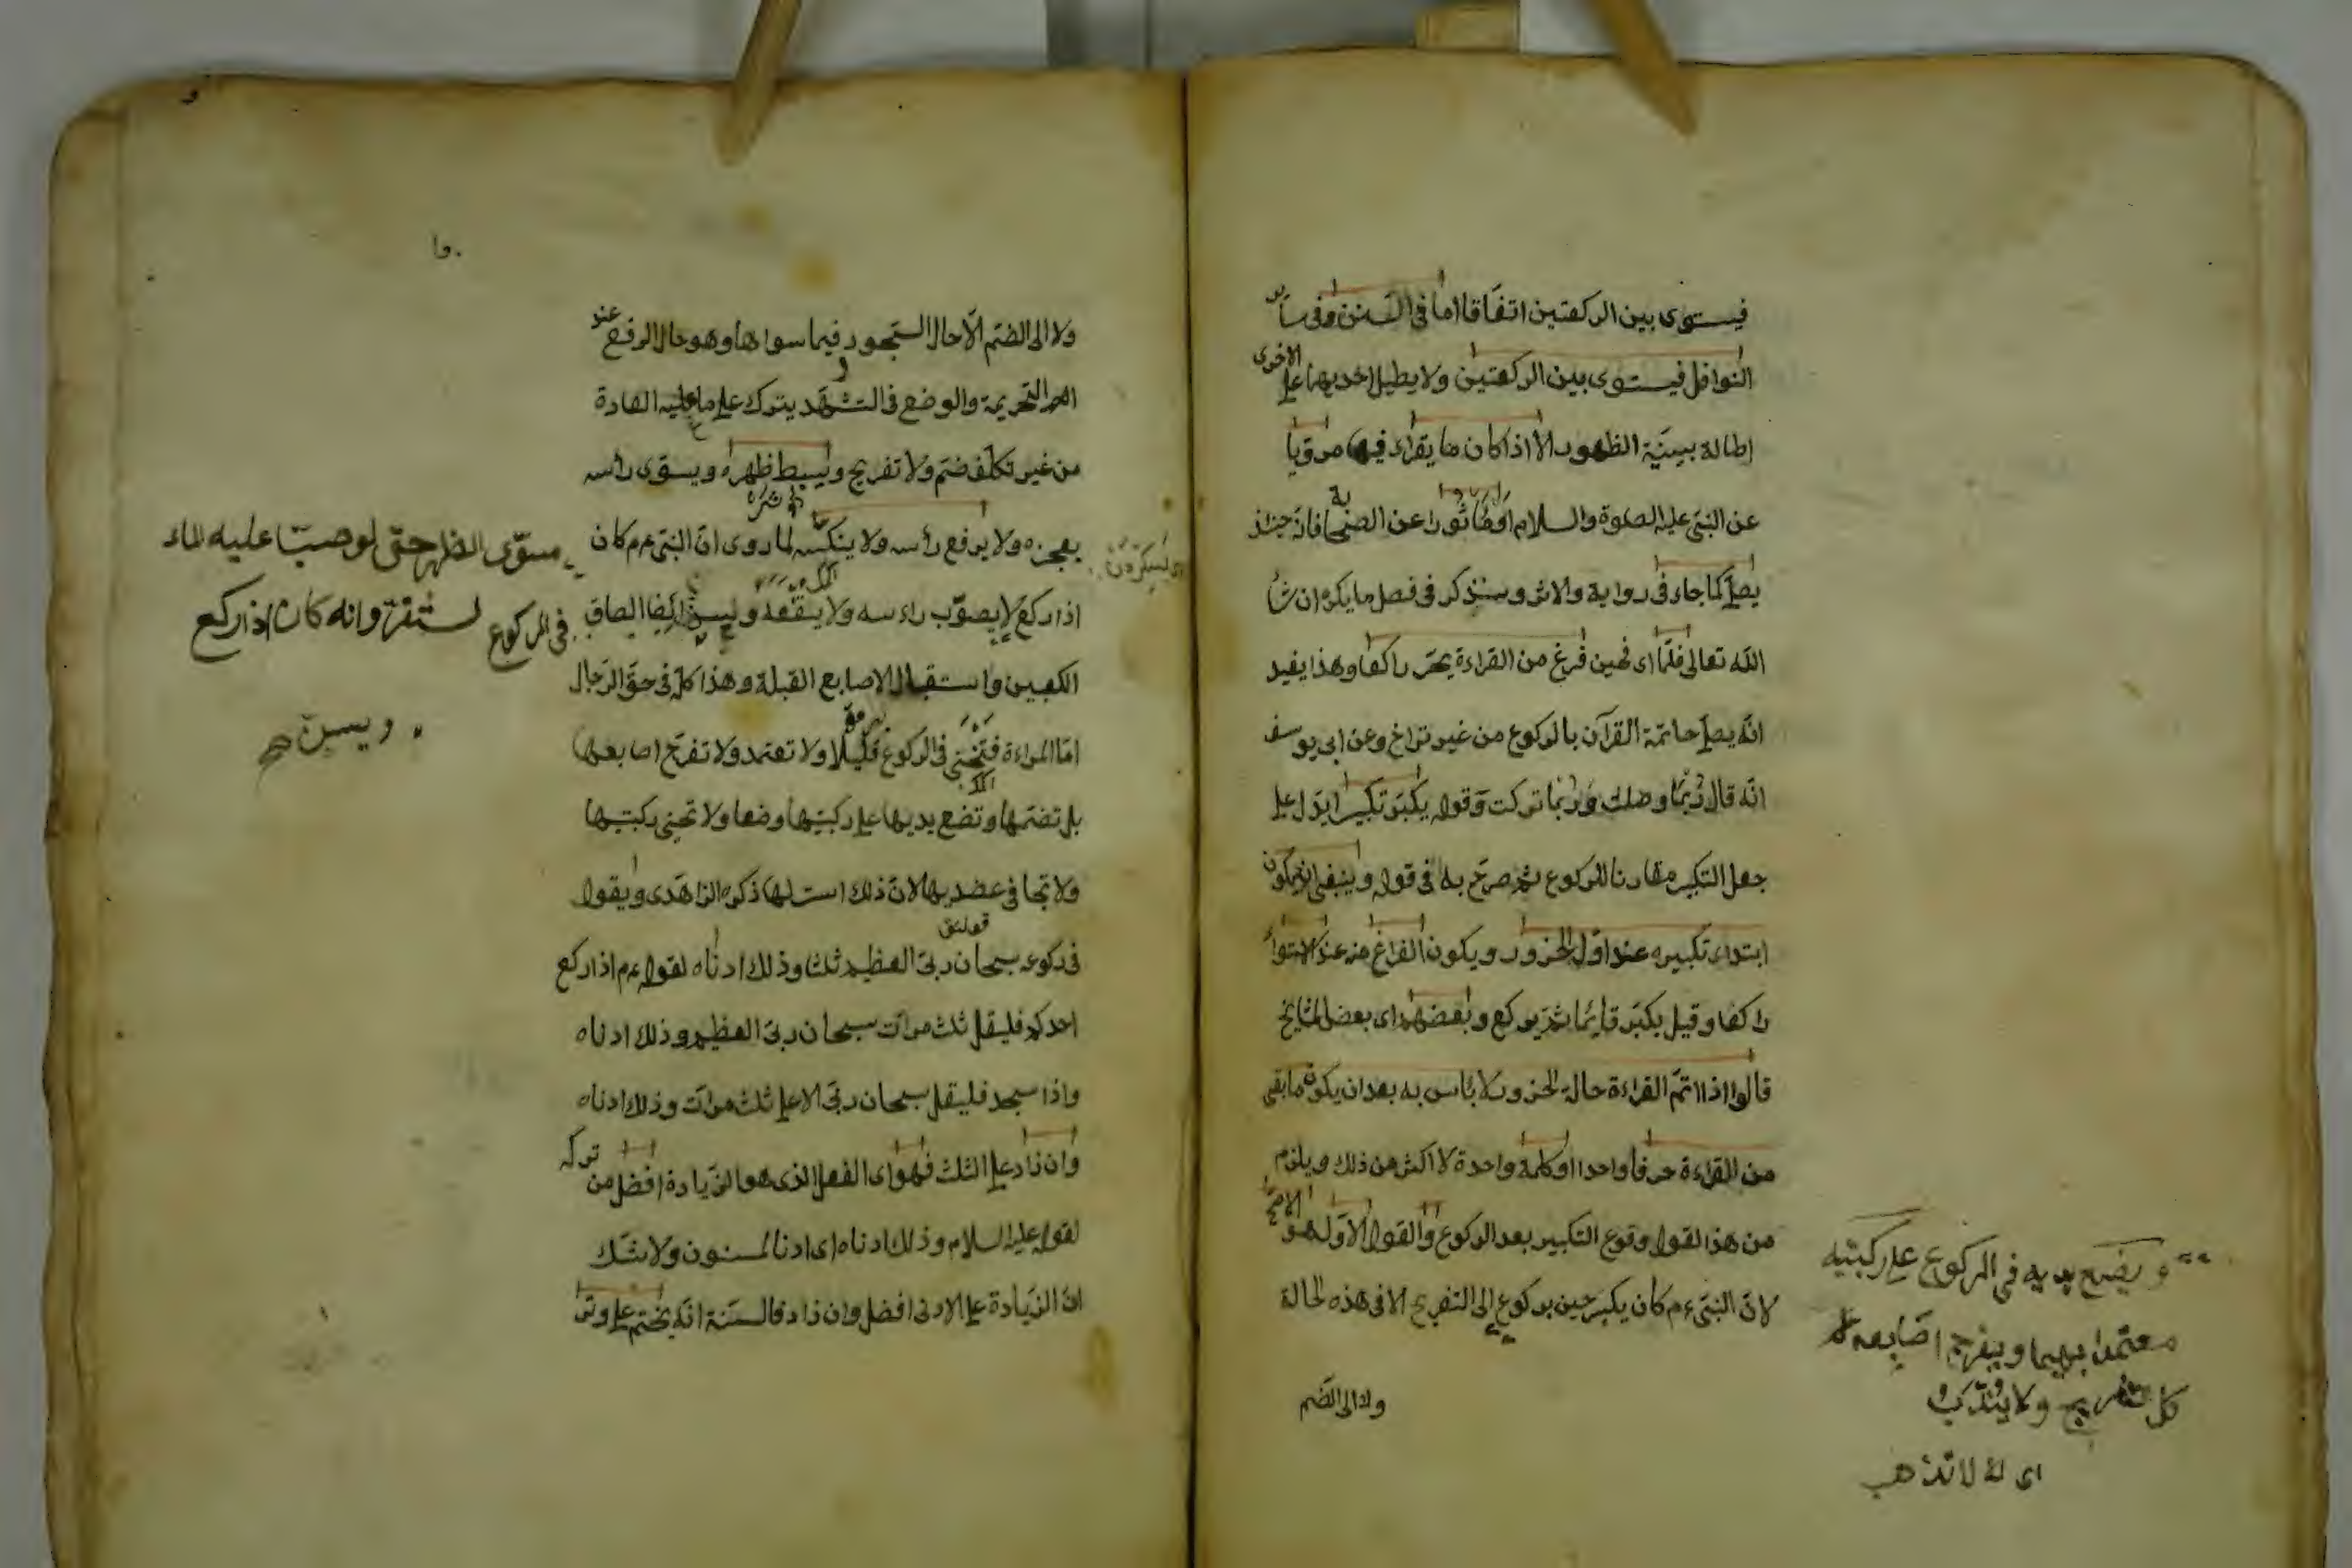 فيستوى بين الركعتين اتفاقا اما فى السنن وفى سائر
النوافل فيستوى بين الركعتين ولا يطيل احديهما على الاخرى
اطالة بيّنة الظهور الا اذا كان ما يقراء فيها مرويا
عن النبى عليه الصلوة والسلام او مأثورا عن الصحابة فانه حينئذ
يصلى كما جاء فى رواية والاثر وسنذكر فى فصل ما يكره ان شاء
الله تعالى فلمّا اى فحين فرغ من القراءة يخر راكعا وهذا يفيد
انه يصل خاتمة القرآن بالركوع من غير تراخ وعن ابى يوسف
انه قال ربّما وصلت وربّما تركت وقوله يكبّر تكبيرا يدل على
جعل التكبير مقارنا للركوع ثم صرّح به فى قوله وينبغى ان يكون
ابتداء تكبيره عند اوّل الخرور ويكون الفراغ منه عند الاستواء
راكعا وقيل يكبّر قائما ثم يركع وبعضهم اى بعض المشايخ
قالوا اذا اتمّ القراءة حالة الخرور لا بأس به بعد ان يكون ما بقى
من القراءة حرفا واحدا او كلمة واحدة لا اكثر من ذلك ويلزم
من هذا القول وقوع التكبير بعد الركوع والقول الاوّل هو الاصحّ
لانّ النبىّ ءم كان يكبر حين يركع الى التفريج الا فى هذه الحالة
ولا الى الضم
ويضع يديه فى الركوع على ركبتيه
معتمدا بهما ويفرج اصابعه
كل تفريج ولا يندب
اى لا
ولا الى الضمّ الّا حال السّجود وفيما سواها وهو حال الرفع عند
التحريمة والوضع فى التشهّد يترك على ما عليه العادة
من غير تكلّف ضم ولا تفريج ويبسط ظهره ويسوّى رأسه
بعجزه ولا يرفع رأسه ولا ينكسه لما روى انّ النبى ءم كان
اذا ركع لا يصوّب راءسه ولا يقنعه ويسنّ ايضا الصاق
الكعبين واستقبال الاصابع القبلة وهذا كلّه فى حقّ الرّجال
امّا المراءة فتنحنى فى الركوع قليلا ولا تعتمد ولا تفرّج اصابعها
بل تضمّها وتضع يديها على ركبتيها وضعا ولا تحنى ركبتيها
ولا تجافى عضديها لان ذلك استر لها ذكره الزاهدى ويقول
فى ركوعه سبحان ربّى العظيم ثلثا وذلك ادناه لقوله ءم اذا ركع
احدكم فليقل ثلث مرّات سبحان ربّى العظيم وذلك ادناه
واذا سجد فليقل سبحان ربّى الاعلى ثلث مرّات وذلك ادناه
وان زاد على الثلث فهو اى الفعل الذى هو الزّيادة افضل من تركه
لقوله عليه السلام وذلك ادناه اى ادنا المسنون ولا شك
انّ الزّيادة على الادنى افضل وان زاد فالسنّة انّه يختم على وتر
مسوّى الظهر حتى لو صبّ عليه الماء
لاستقرّ وانه كان اذا ركع
فى الركوع
ويسنّ صح